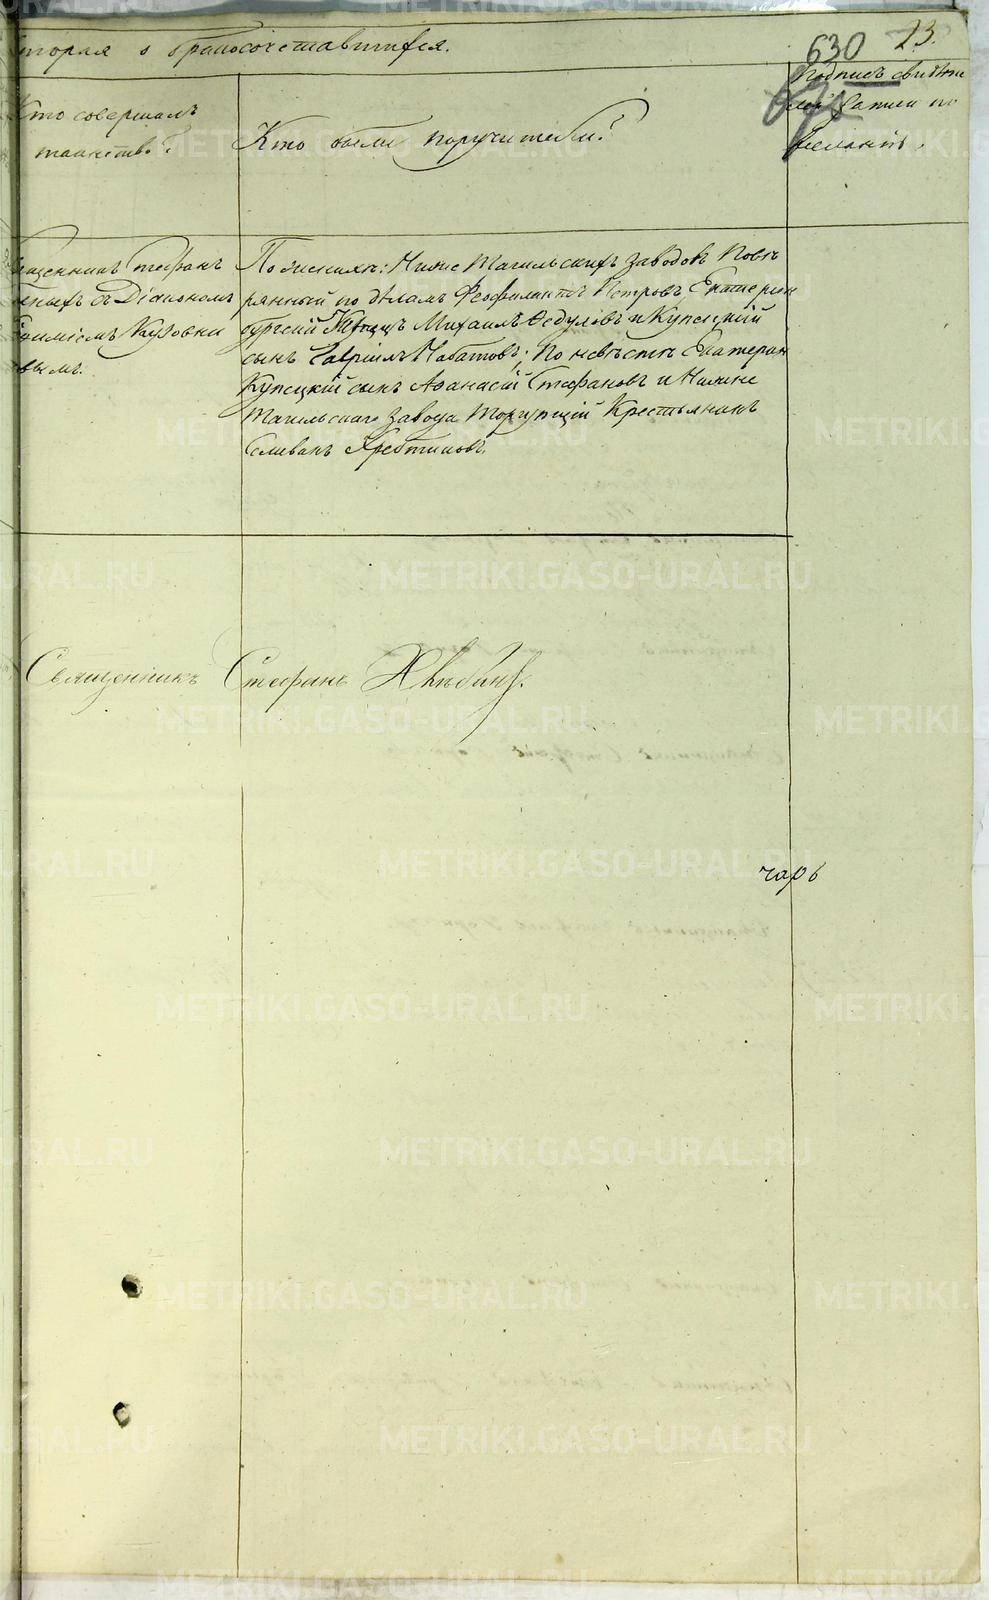 вторая о бракосочетавшихся.
630 23.
Кто совершалъ
таинство?
Кто были поручители?
Подпись свидѣте
лей записи по
желанію.
Священникъ Стефанъ
съ Діакономъ
По женихѣ: Нижне Тагильскихъ заводовъ Повѣ
ренный по дѣламъ Феофилактъ Петровъ, Екатерин
бургскій Купецъ Михаилъ Ѳедуловъ и Купеческій
сынъ Гавріилъ Набатовъ; По невѣстѣ Екатерин
Купецкій сынъ Аѳанасій Стефановъ и Нижне
Тагильскаго завода Торгующій Крестьянинъ
Селиванъ
Священникъ Стефанъ Хлѣбинъ.
чарь
METRIKI.GASO-URAL.RU